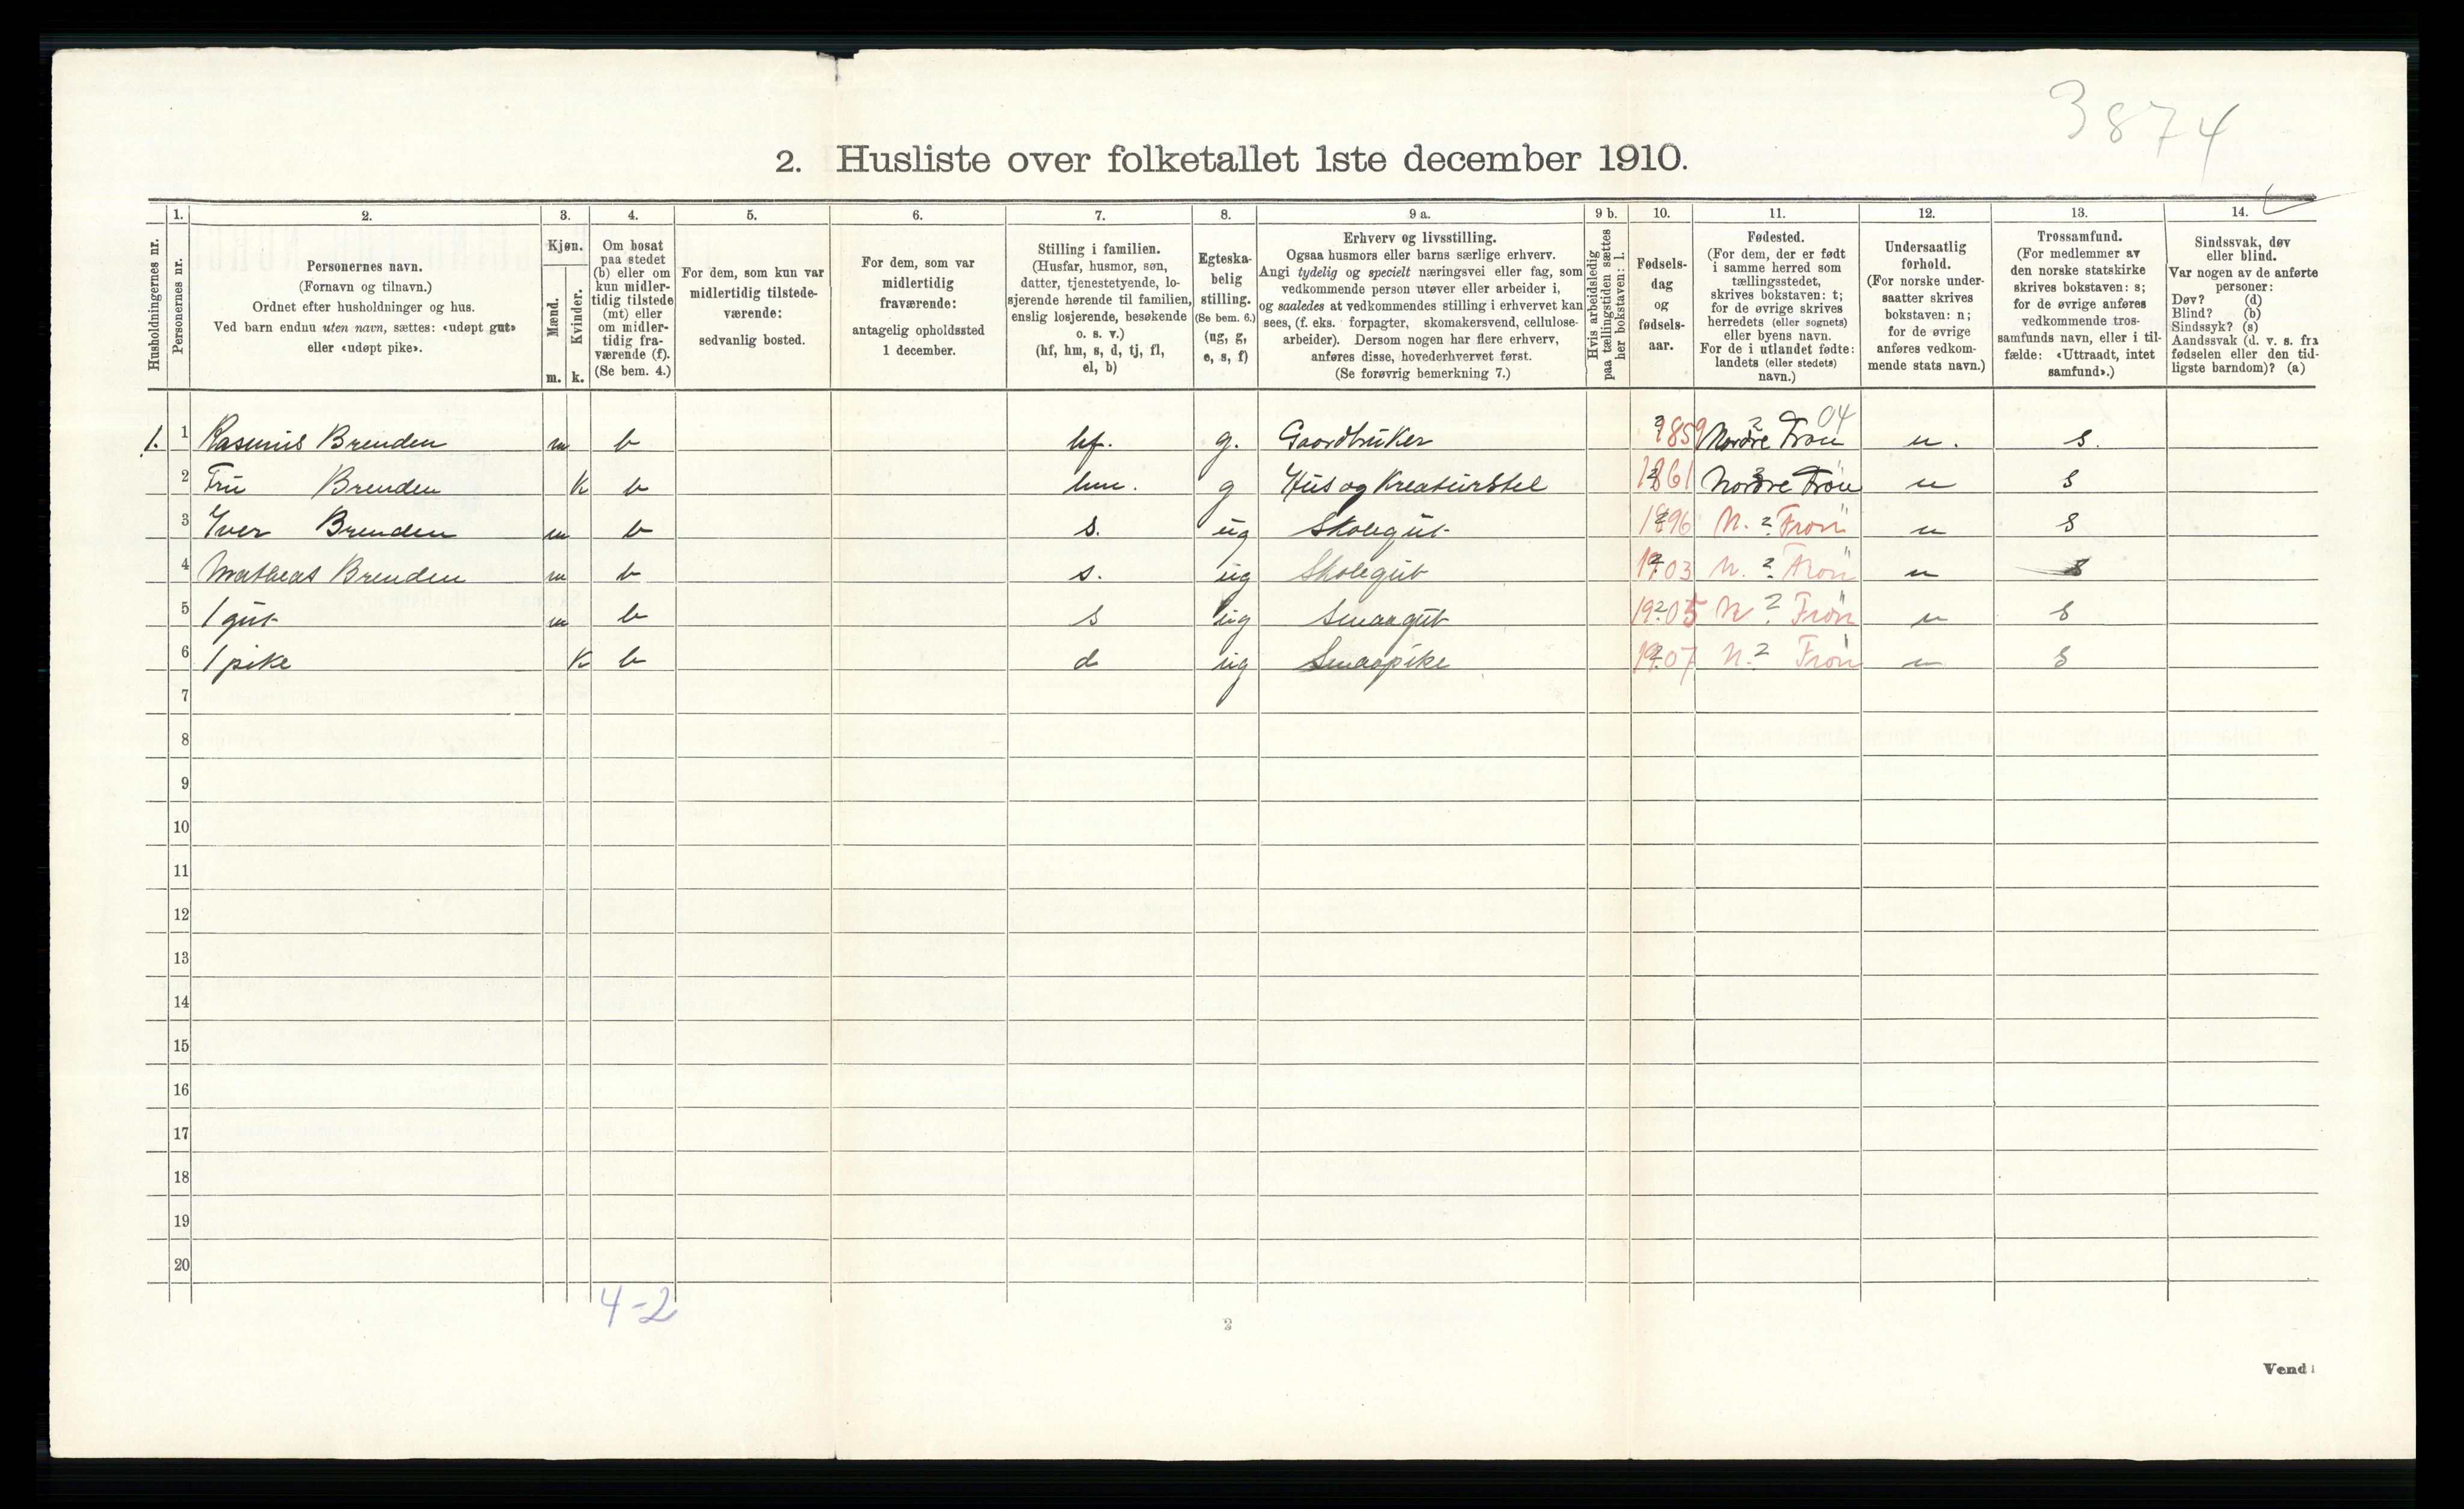 3874
2. Husliste over folketallet 1ste december 1910.
1. 2. 3. 4. 5. 6. 7. 8. 9 a. 9 b. 10. 11. 12. 13. 14.
Husholdningernes nr.
Personernes nr.
Personernes navn.
(Fornavn og tilnavn.)
Ordnet efter husholdninger og hus.
Ved barn endnu uten navn, sættes: «udøpt gut»
eller «udøpt pike».
Kjøn.
Mænd.
Kvinder.
m. k.
Om bosat
paa stedet
(b) eller om
kun midler-
tidig tilstede
(mt) eller
om midler-
tidig fra-
værende (f).
(Se bem. 4.)
For dem, som kun var
midlertidig tilstede-
værende:
sedvanlig bosted.
For dem, som var
midlertidig
fraværende:
antagelig opholdssted
1 december.
Stilling i familien.
(Husfar, husmor, søn,
datter, tjenestetyende, lo-
sjerende hørende til familien,
enslig losjerende, besøkende
o. s. v.)
(hf, hm, s, d, tj, fl,
el, b)
Egteska-
belig
stilling.
(Se bem. 6.)
(ug, g,
e, s, f)
Erhverv og livsstilling.
Ogsaa husmors eller barns særlige erhverv.
Angi tydelig og specielt næringsvei eller fag, som
vedkommende person utøver eller arbeider i,
og saaledes at vedkommendes stilling i erhvervet kan
sees, (f. eks. forpagter, skomakersvend, cellulose-
arbeider). Dersom nogen har flere erhverv,
anføres disse, hovederhvervet først.
(Se forøvrig bemerkning 7.)
Hvis arbeidsledig
paa tællingstiden sættes
her bokstaven: l.
Fødsels-
dag
og
fødsels-
aar.
Fødested.
(For dem, der er født
i samme herred som
tællingsstedet,
skrives bokstaven: t;
for de øvrige skrives
herredets (eller sognets)
eller byens navn.
For de i utlandet fødte:
landets (eller stedets)
navn.)
Undersaatlig
forhold.
(For norske under-
saatter skrives
bokstaven: n;
for de øvrige
anføres vedkom-
mende stats navn.)
Trossamfund.
(For medlemmer av
den norske statskirke
skrives bokstaven: s;
for de øvrige anføres
vedkommende tros-
samfunds navn, eller i til-
fælde: «Uttraadt, intet
samfund».)
Sindssvak, døv
eller blind.
Var nogen av de anførte
personer:
Døv? (d)
Blind? (b)
Sindssyk? (s)
Aandssvak (d. v. s. fra
fødselen eller den tid-
ligste barndom)? (a)
04
1. 1 Rasmus Brenden m b hf. g. Gaardbruker ? 1859 Nordre ? Fron n. s.
2 Fru Brenden k b hm. g Hus og Kreaturstel ? 1861 Nordre ? Fron n s
3 Iver Brenden m b s. ug Skolegut ? 1896 N. ? Fron " n s
4 Matheas Brenden m b s. ug Skolegut ? 1903 N. ? Fron " n s
5 1 gut m b s ug Smaagut ? 1905 N ? Fron " n s
6 1 pike k b d ug Smaapike ? 1907 N. ? Fron " n s
7
8
9
10
11
12
13
14
15
16
17
18
19
20
4-2
2
Vend